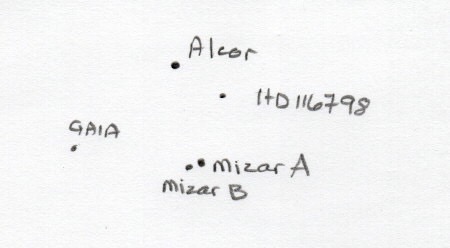 Alcor
HD116798
GAIA
Mizar A
Mizar B